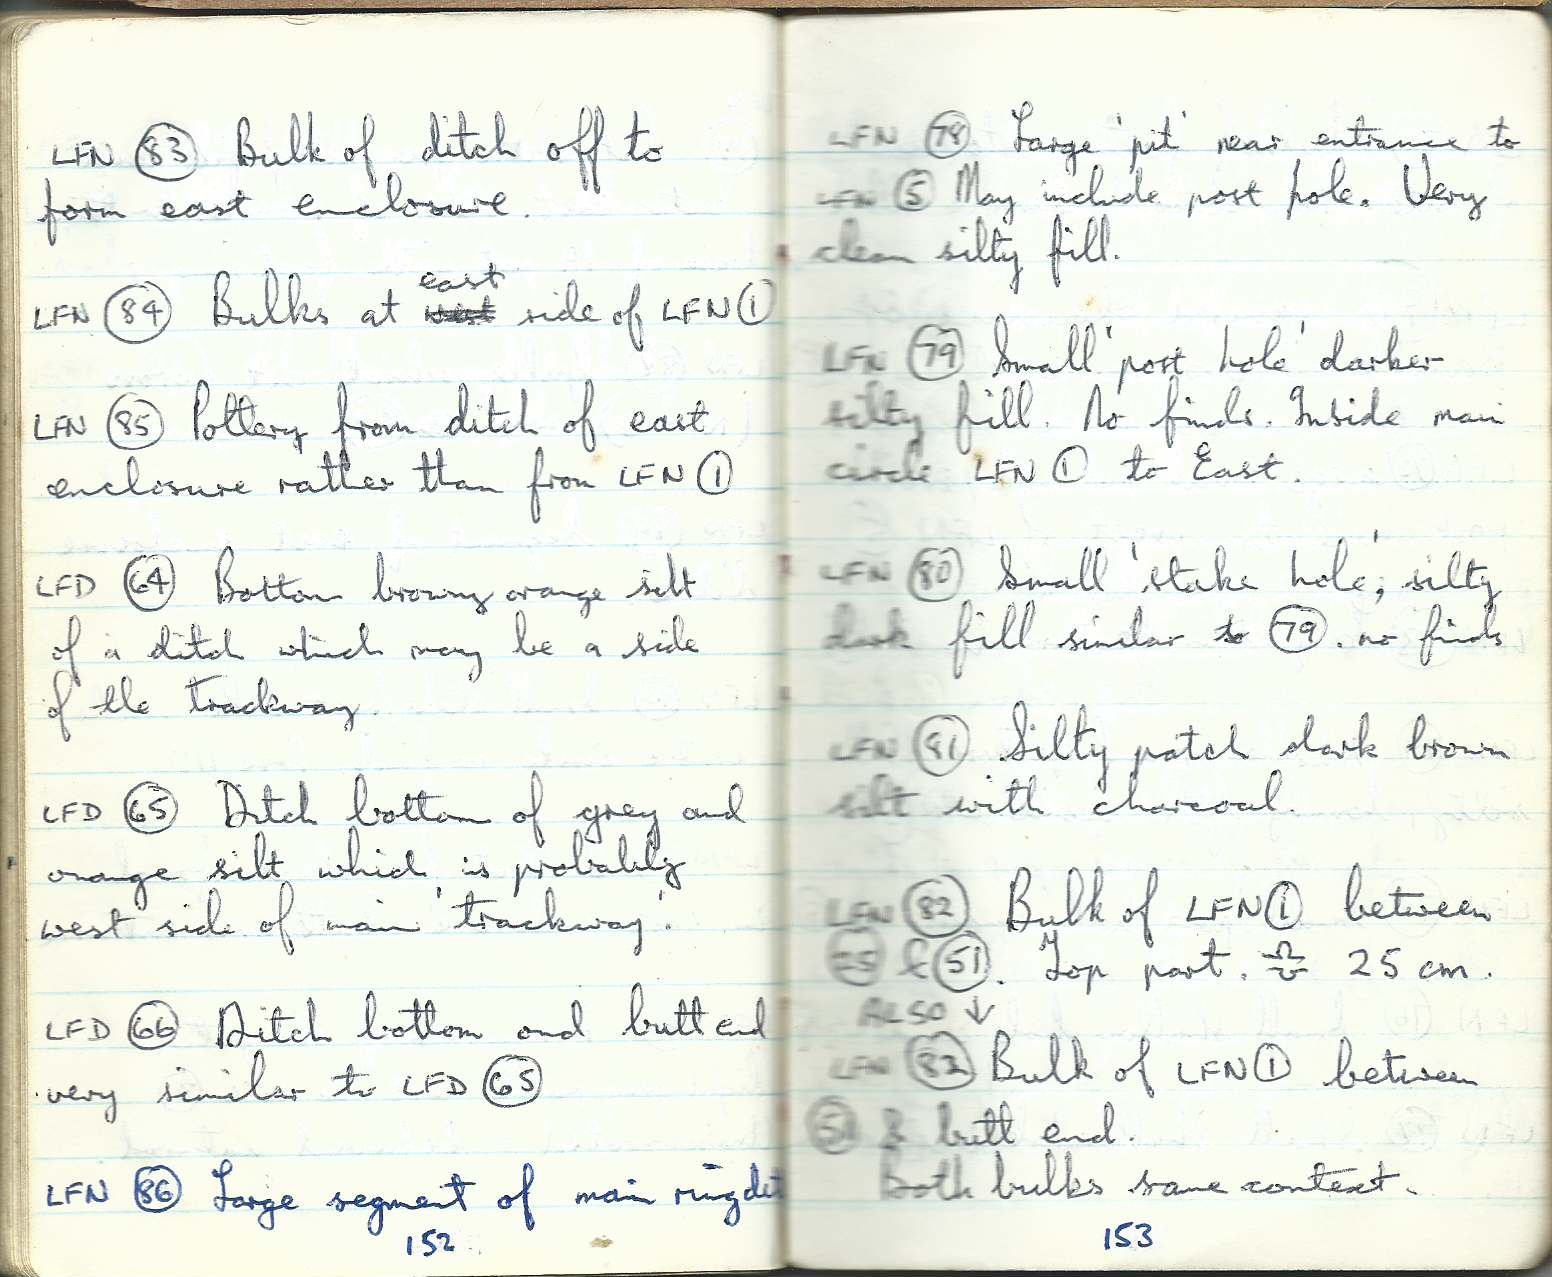 LFN 83 Bulk of ditch off to
form east enclosure.
east
LFN 84 Bulks at west side of LFN 1
LFN 85 Pottery from ditch of east
enclosure rather than from LFN 1
LFD 64 Bottom browny orange silt
of a ditch which may be a side
of the trackway.
LFD 65 Ditch bottom of grey and
orange silt which is probably
west side of main 'trackway'.
LFD 66 Ditch bottom and butt end
very similar to LFD 65
LFN 86 Large segment of main ring dit
152
LFN 78 Large 'pit' near entrance to
LFN 5 May include post hole. Very
clean silty fill.
LFN 79 Small 'post hole' darker
silty fill. No finds. Inside main
circle LFN 1 to East.
LFN 80 Small 'stake hole', silty
dark fill similar to 79. no finds
LFN 81 Silty patch dark brown
silt with charcoal.
LFN 82 Bulk of LFN 1 between
& 51. Top part. 25 cm.
ALSO ↓
LFN 82 Bulk of LFN 1 between
51 & butt end.
Both bulks same context.
153